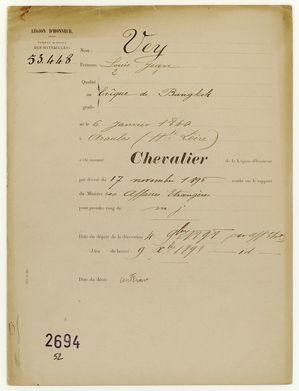 LÉGION D'HONNEUR.
53.448
Nom : Vey
Prénoms Louis
Qualité
ou Evêque de Bangkok
grade
né le 6 Janvier 1840
à Araules (Hte Loire)
a été nommé Chevalier de la Légion d'honneur
par décret du 17 novembre 1895 rendu sur le rapport
du Ministre des Affaires Etrangères
pour prendre rang du m. j.
Date du départ de la décoration 4
Date du brevet 9 id
Date du décès
2694
52